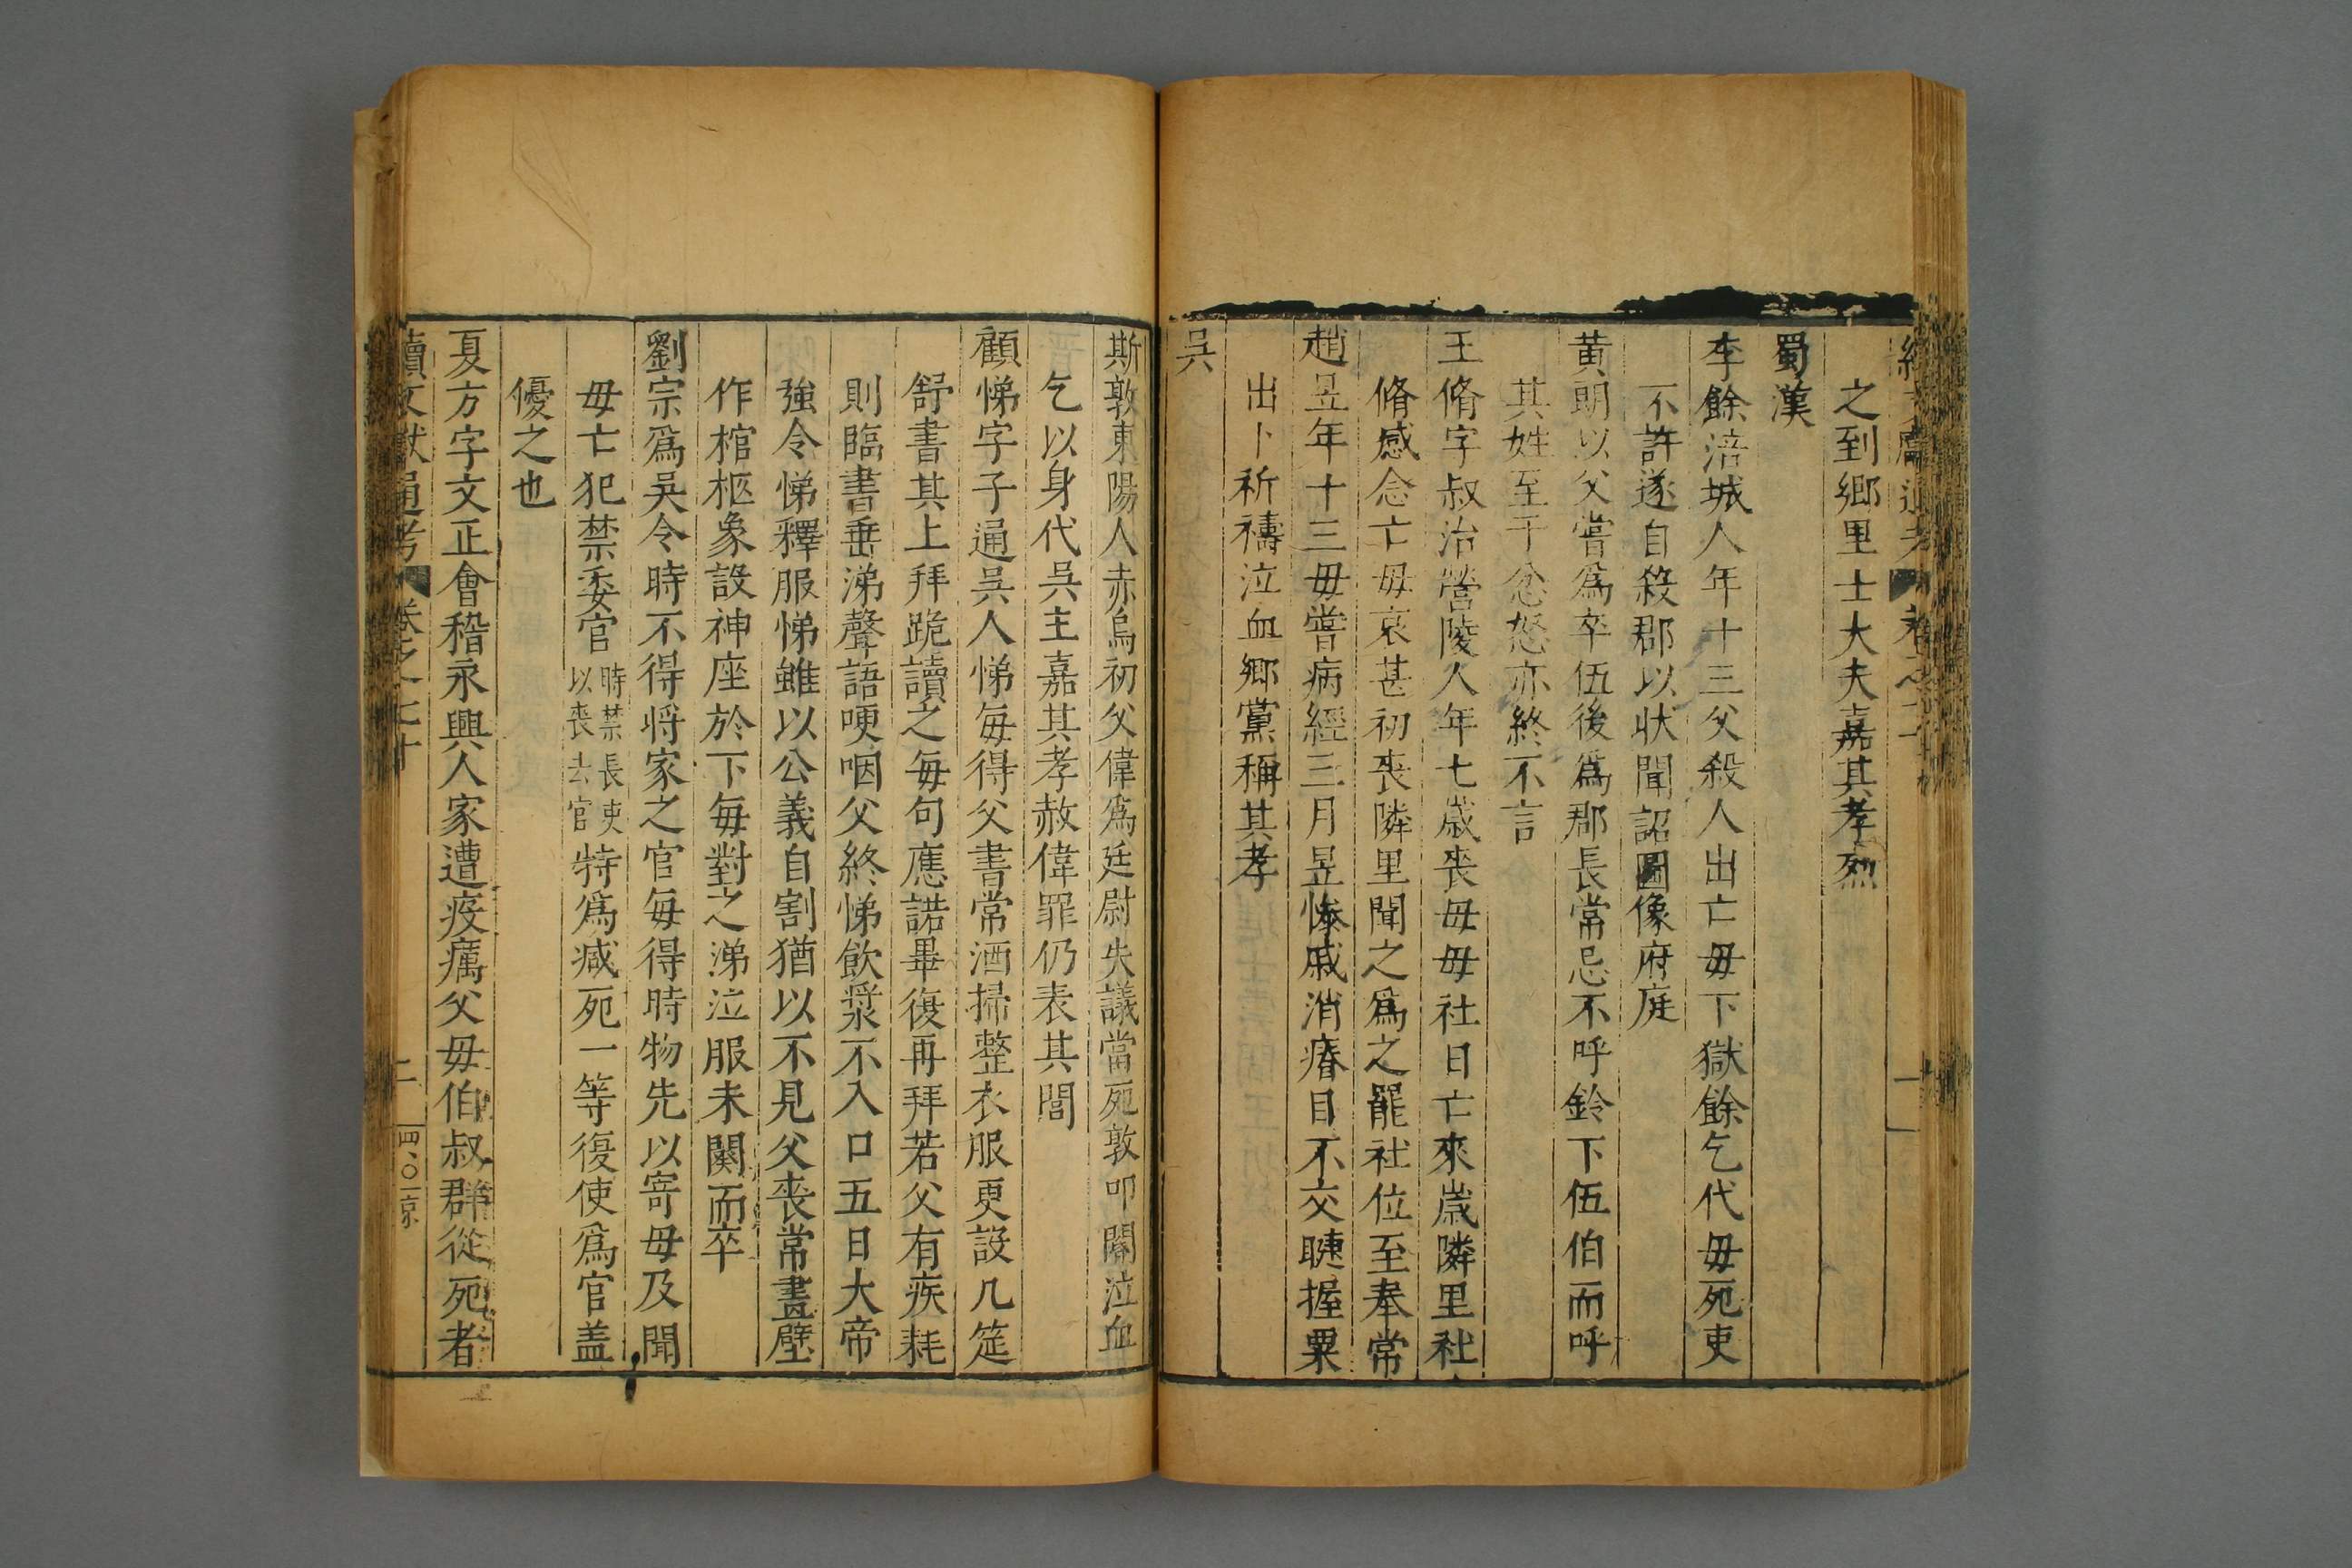 之到鄉里士大夫嘉其孝烈
蜀漢
李餘涪城人年十三父殺人出亡毋下獄餘乞代毋死吏
不許遂自殺郡以狀聞詔圖像府庭
黃朗以父嘗爲卒伍後爲郡長常忌不呼鈴下伍伯而呼
其姓至于忿怒亦終不言
王脩字叔治營陵人年七歲喪毋毋社日亡來歲隣里社
脩感念亡毋哀甚初喪隣里聞之爲之罷社位至奉常
趙昱年十三毋嘗病經三月昱慘戚消瘠目不交睫握粟
出卜祈禱泣血鄉黨稱其孝
吳
斯敦東陽人赤烏初父偉爲廷尉失議當死敦叩閽泣血
乞以身代吳主嘉其孝赦偉罪仍表其閭
顧悌字子通吳人悌每得父書常洒掃整衣服更設几筵
舒書其上拜跪讀之每句應諾畢復再拜若父有疾耗
則臨書垂涕聲語哽咽父終悌飲漿不入口五日大帝
強令悌釋服悌雖以公義自割猶以不見父喪常畫壁
作棺柩象設神座於下每對之涕泣服未闋而卒
劉宗爲吳令時不得將家之官每得時物先以寄毋及聞
毋亡犯禁委官時禁長吏以喪去官特爲减死一等復使爲官盖
優之也
夏方字文正會稽永興人家遭疫癘父毋伯叔群從死者
續文獻通考 卷之七十 二